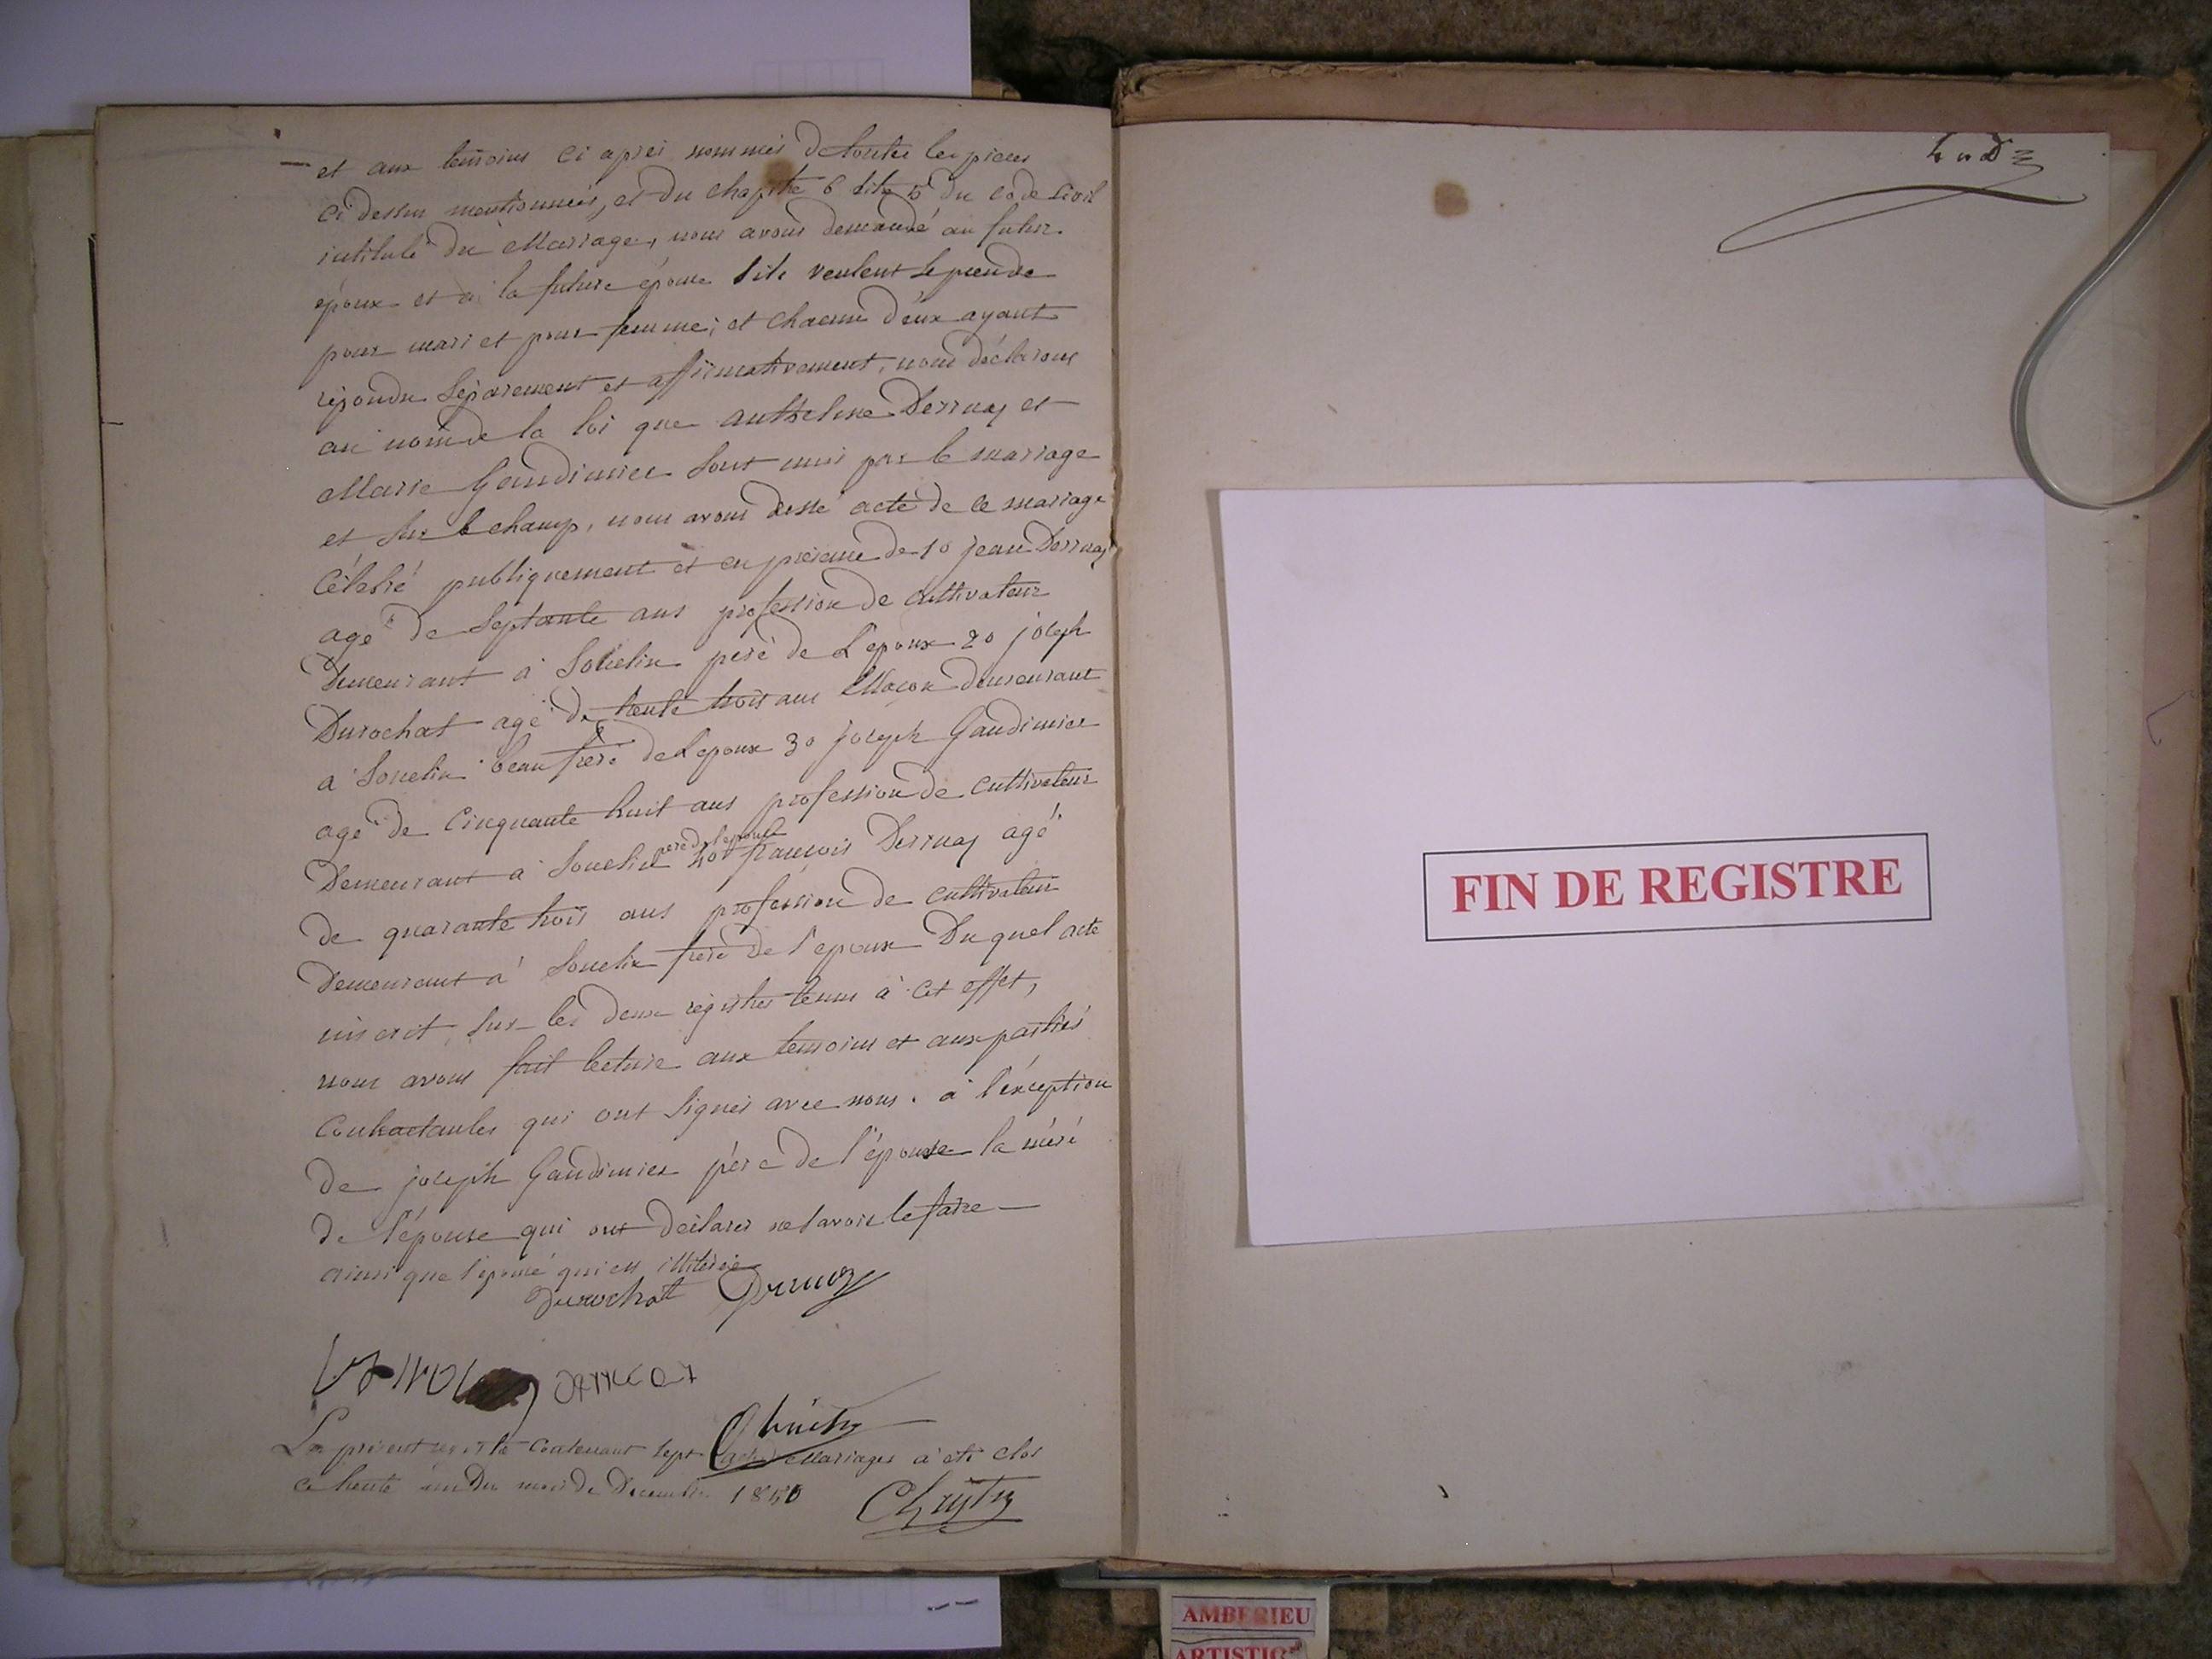 et aux temoins ci aprés nommés de toutes les pieces
ci dessus mentionnées, et du chapitre 6 titre 5 du code Civil
intitulé du Mariage, nous avons demandé au futur
époux et à la future épouse s'ils veulent se prendre
pour mari et pour femme; et chacun d'eux ayant
répondu séparement et affirmativement, nous déclarons
au nom de la loi que anthelme Derruaz et
Marie Gaudimier sont unis par le mariage
et sur le champ, nous avons dressé acte de ce mariage
Célébré publiquement et en présence de 1o Jean Derruaz
agé de Septante ans profession de cultivateur
Demeurant à Souclin pere de L'epoux 2o joseph
Durochat agé de trente trois ans Maçon demeurant
a Souclin beau frère de Lepoux 3o joseph Gaudimier
agé de Cinquante huit ans profession de cultivateur
Demeurant a Souclin pere de l'epouse 4o francois Derruaz agé
de quarante trois ans profession de cultivateur
Demeurant à Souclin frère de l'epoux Du quel acte
inscrit sur les deux registres tenus à cet effet,
nous avons fait lecture aux temoins et aux parties
Contractantes qui ont signés avec nous. à l'éxception
De joseph Gaudimier père de l'épouse la mère
de l'épouse qui ont déclarer ne savoir le faire
ainsi que l'epouse qui est illitérée
Durochat Derruaz
Derruaz
Chrystin
Le présent registre Contenant sept actes Mariages a été clos
ce trente un du mois de Decembre 1850
Chrystin
FIN DE REGISTRE
AMBERIEU
ARTISTIC